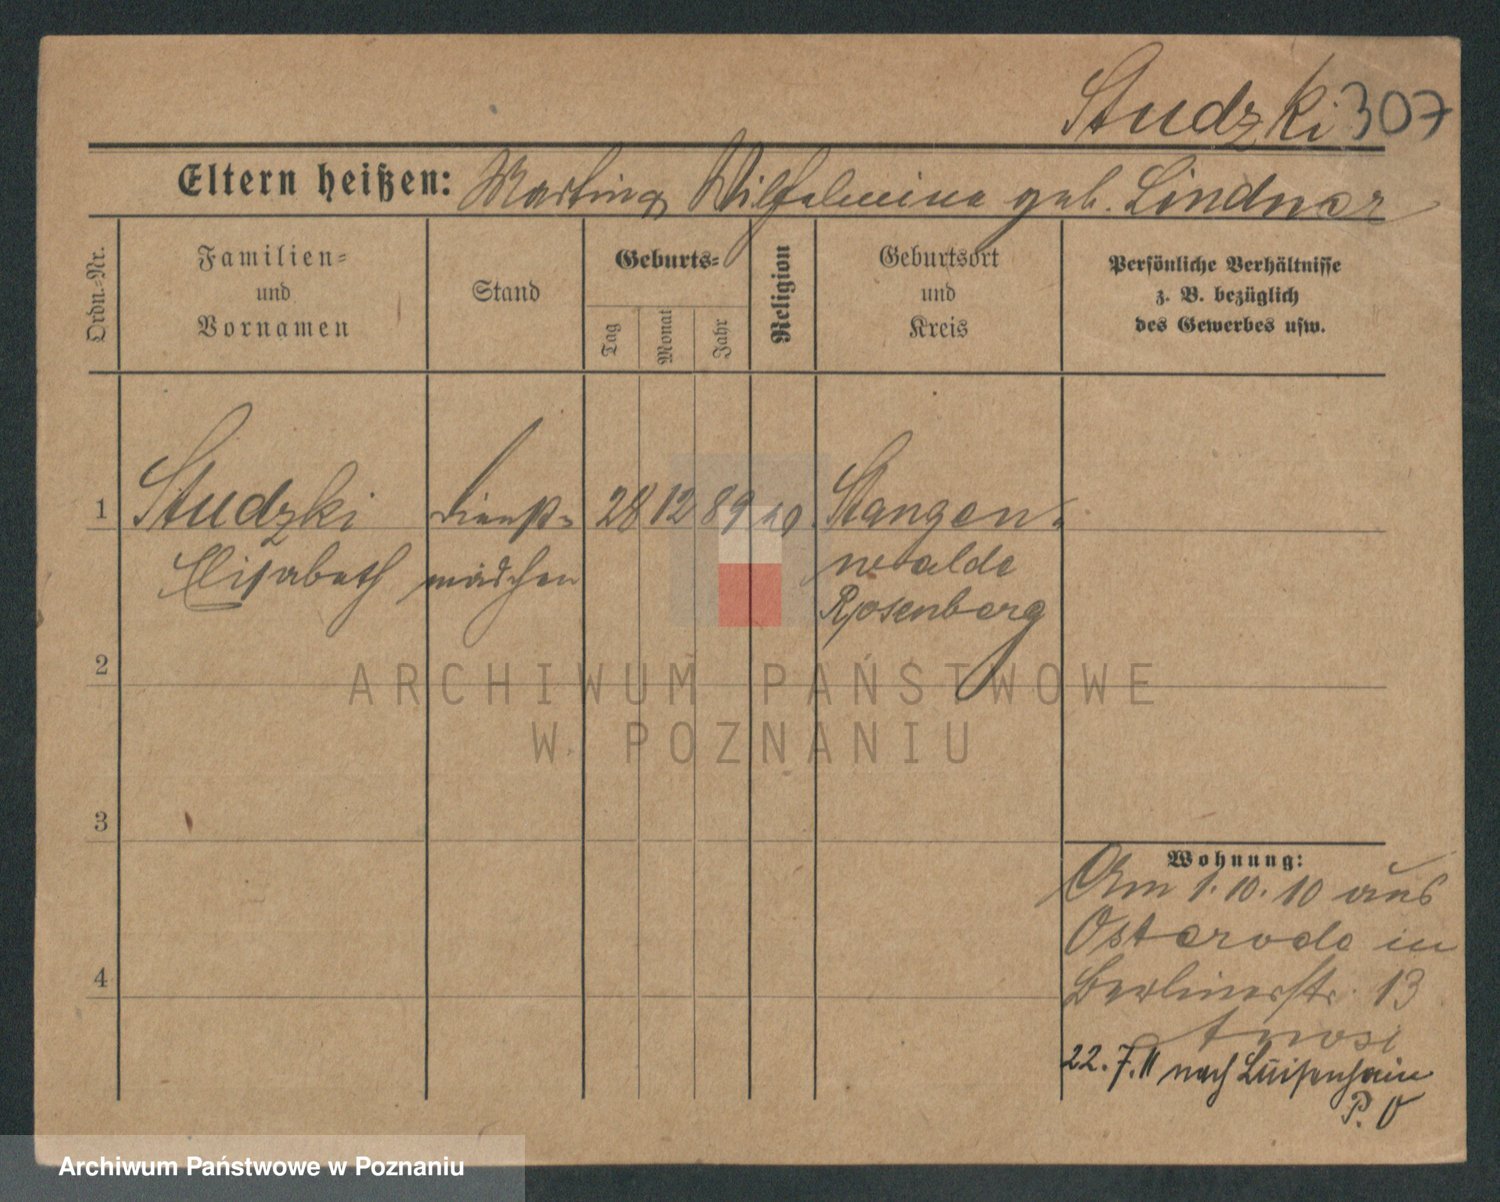 Studzki 307
Eltern heißen: Martin, Wilhelmine geb. Lindner
Ordn.-Nr.
Familien=
und
Vornamen
Stand
Geburts=
Tag
Monat
Jahr
Religion
Geburtsort
und
Kreis
Persönliche Verhältnisse
z. B. bezüglich
des Gewerbes usw.
1 Studzki Dienst= 28 12 89 Stangen-
Elisabeth mädchen walde
Rosenberg
2
3
4
Wohnung:
Am 1.10.10 aus
Osterode in
Berlinerstr. 13
22.7.11 nach Luisenhain
P. O
ARCHIWUM PAŃSTWOWE
W POZNANIU
Archiwum Państwowe w Poznaniu